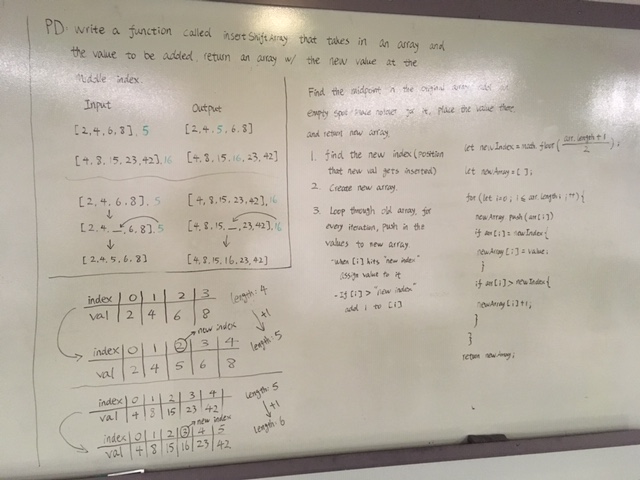 PD: write a function called insertShiftArray that takes in an array and
the value to be added, return an array w/ the new value at the
middle index.
Input
Output
[2,4,6,8], 5
[2,4,5,6,8]
[4,8,15,23,42], 16
[4,8,15,16,23,42]
[2,4,6,8], 5
[4,8,15,23,42], 16
[2,4,_,6,8], 5
[4,8,15,_,23,42], 16
[2,4,5,6,8]
[4,8,15,16,23,42]
index 0 1 2 3
val 2 4 6 8
length: 4
+1
new index
index 0 1 2 3 4
val 2 4 5 6 8
length: 5
index 0 1 2 3 4
val 4 8 15 23 42
length: 5
+1
new index
index 0 1 2 3 4 5
val 4 8 15 16 23 42
length: 6
Find the midpoint of the original array, add an
empty spot / make room for it, place the value there,
and return new array.
1. find the new index (position
that new val gets inserted)
2. Create new array.
3. Loop through old array, for
every iteration, push in the
values to new array.
-when [i] hits "new index"
assign value to it
-If [i] > "new index"
add 1 to [i]
let newIndex = math.floor (arr.length+1
2);
let newArray = [ ];
for (let i=0; i ≤ arr.length; i++) {
newArray.push (arr[i])
if arr[i] = newIndex {
newArray [i] = value;
}
if arr[i] > newIndex {
newArray [i]+1;
}
}
return newArray;